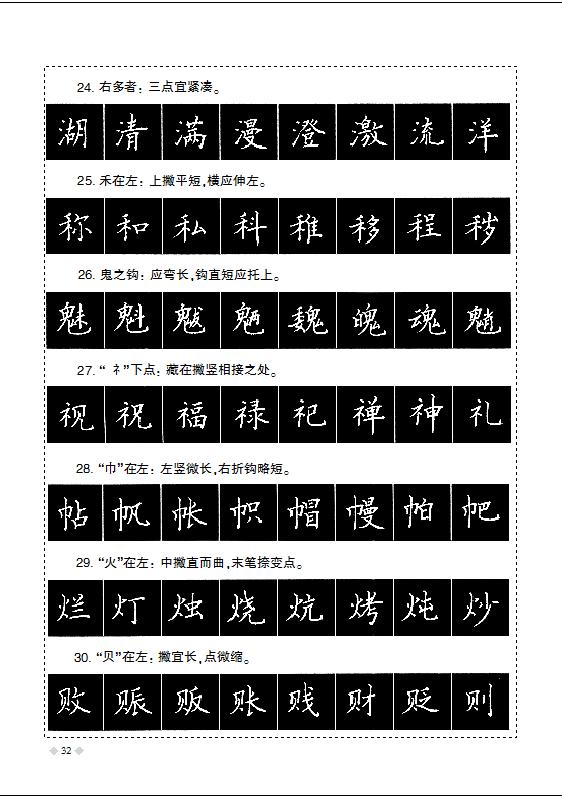 24. 右多者：三点宜紧凑。
湖清满漫澄激流洋
25. 禾在左：上撇平短，横应伸左。
称和私科稚移程秽
26. 鬼之钩：应弯长，钩直短应托上。
魅魁魃魉魏魄魂魈
27. “礻”下点：藏在撇竖相接之处。
视祝福禄祀禅神礼
28. “巾”在左：左竖微长，右折钩略短。
帖帆帐帜帽幔帕帊
29. “火”在左：中撇直而曲，末笔捺变点。
烂灯烛烧炕烤炖炒
30. “贝”在左：撇宜长，点微缩。
败赈贩账贱财贬则
32